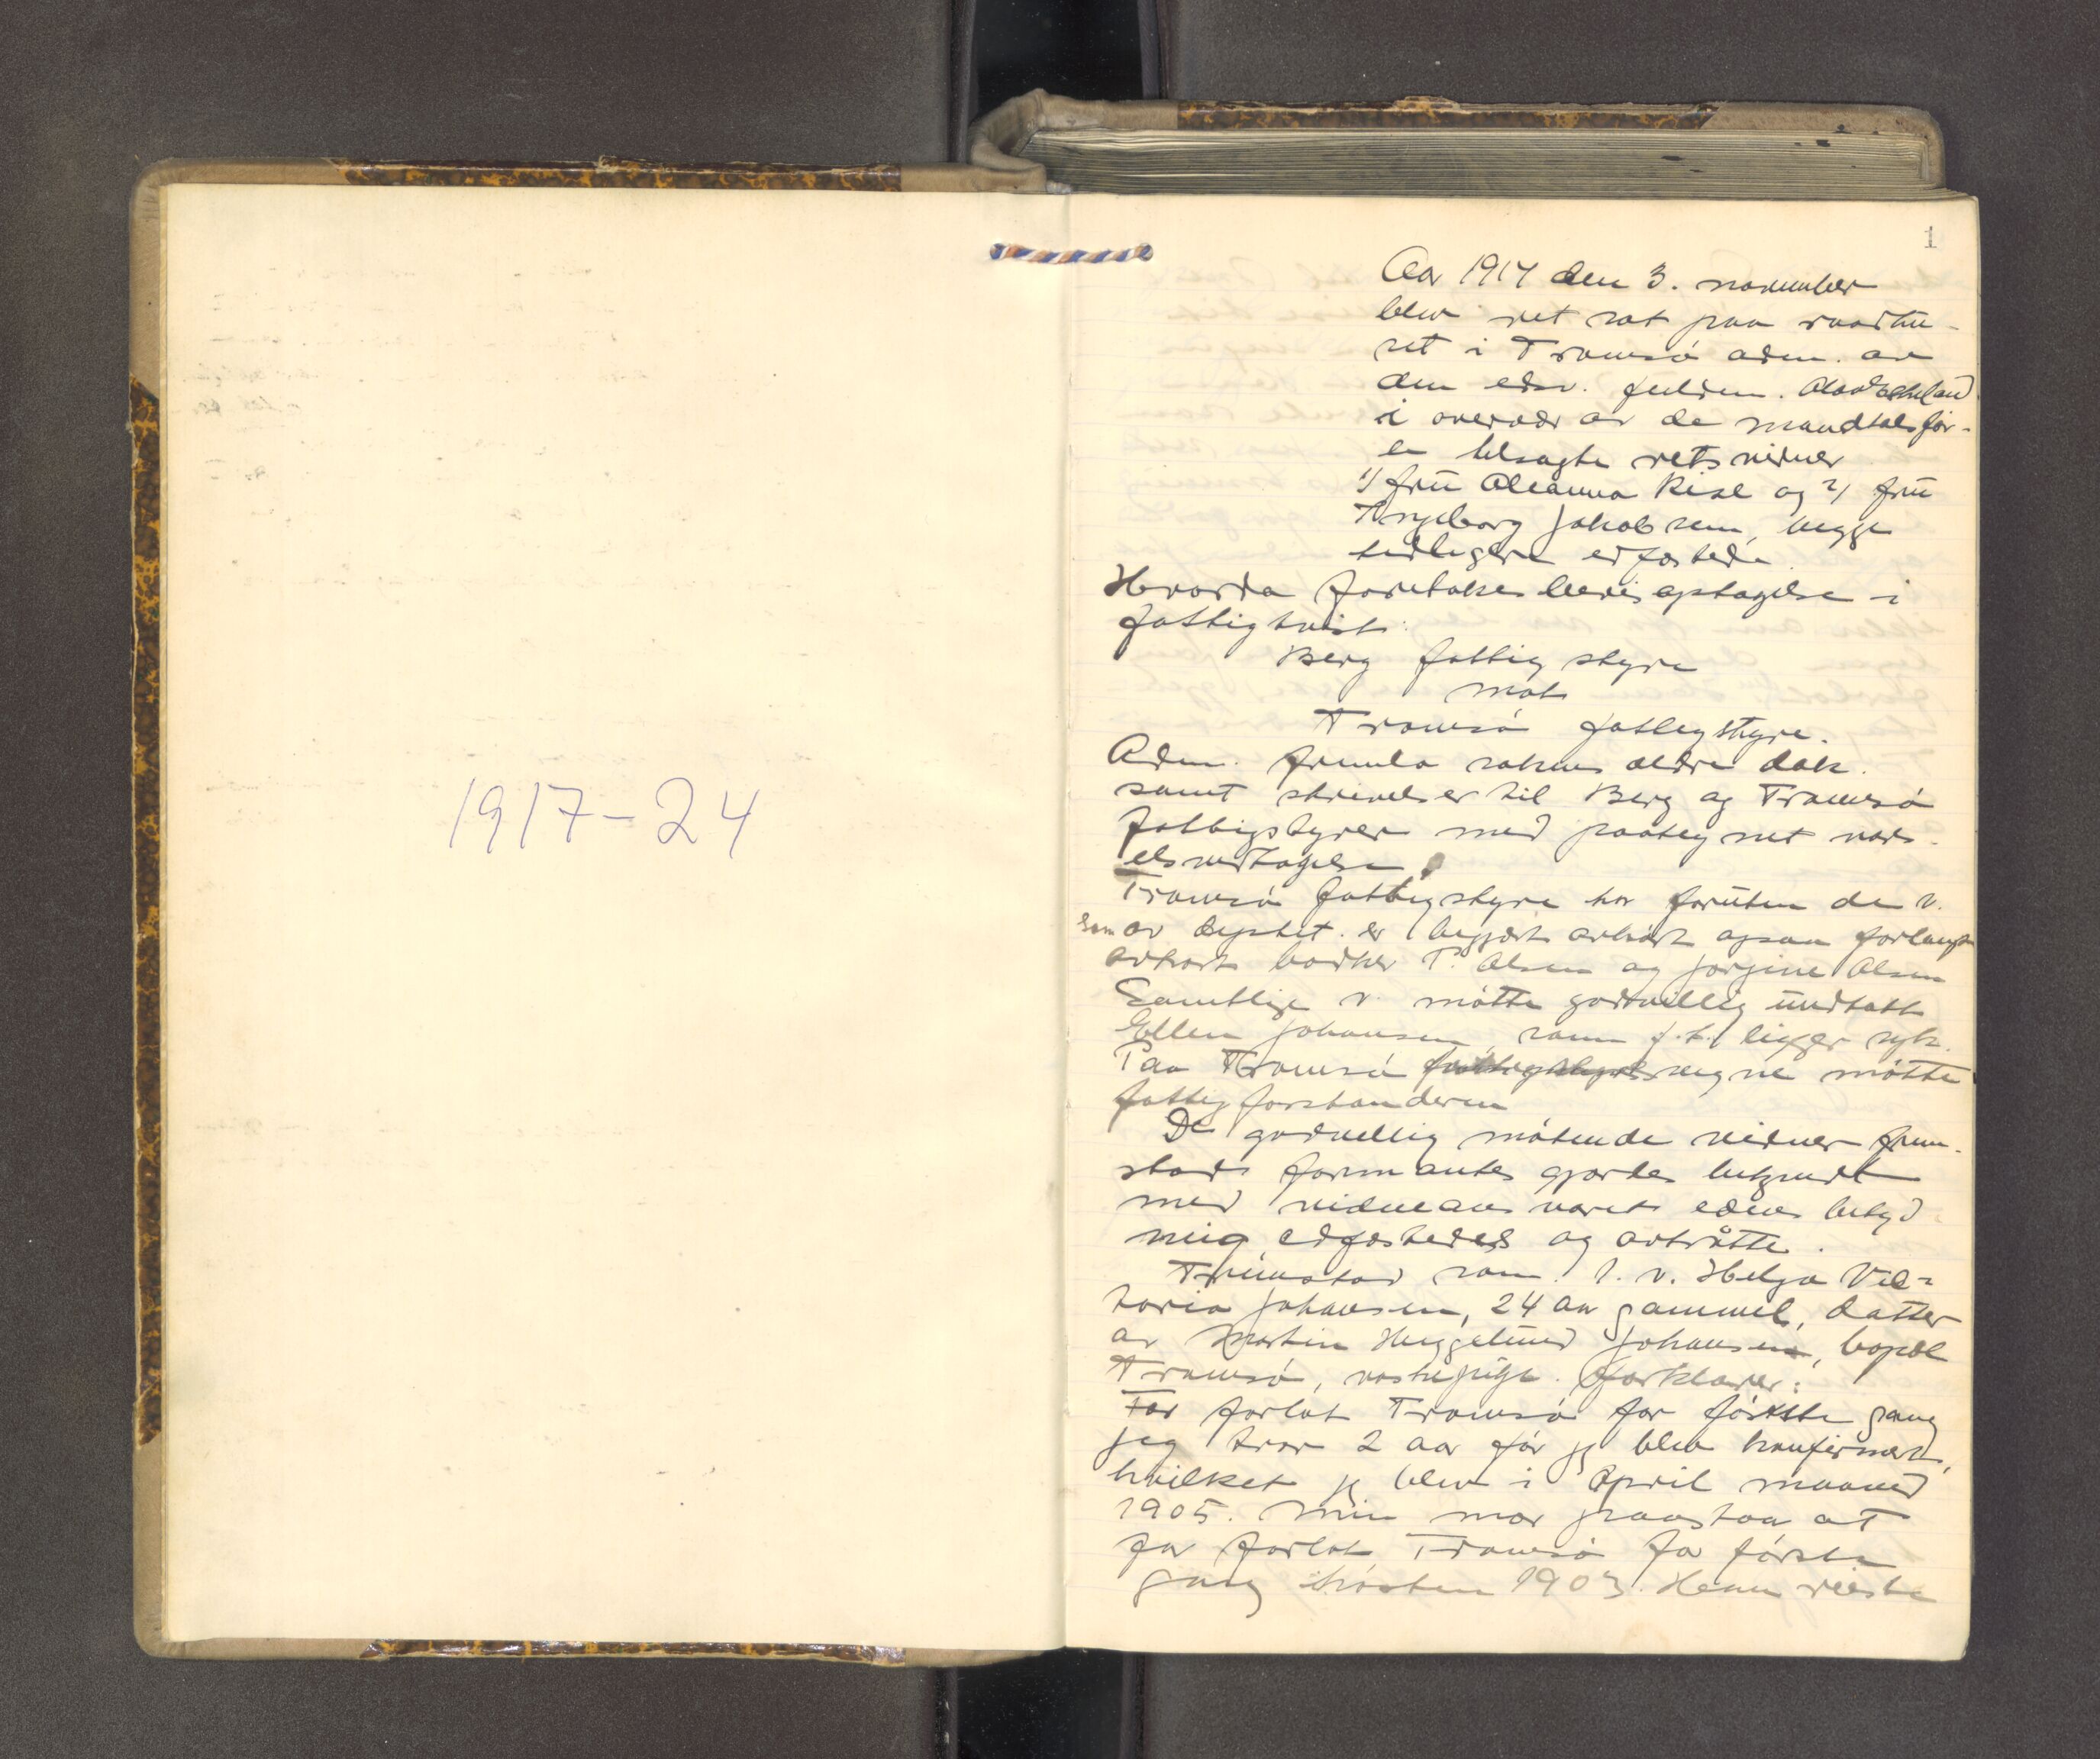 1917-24
1
Aar 1917 den 3. november
blev ret sat paa raadhu-
set i Tromsø adm. av
den edsv. fuldm.
i overvær av de mandtalsfør-
te besagte retsvidner
1) fru Aleanna Rise og 2) fru
Ingeborg Jakobsen, begge
tidligere edfæstede.
Hvorda foretokes bevisoptagelse i
fattigtvist:
Berg fattigstyre
mot
Tromsø fattigstyre.
Adm. fremla sakens ældre dok.
samt skrivelser til Berg og Tromsø
fattigstyrer med paategnet vars-
elsvedtagelse.
Tromsø fattigstyre har foruten de v.
som av er begjært avhørt ogsaa forlangt
avhørt bødker P. Olsen og Jørgine Olsen
Samtlige v. møtte godvillig undtatt
Ellen Johansen, som f.t. ligger syk.
Paa Tromsø fattigstyres vegne møtte
fattigforstanderen
De godvillig møtende vidner frem-
stod formantes gjordes bekjendt
med vidneansvaret edens betyd
ning, edfæstedes og avtraatte.
Fremstod som 1. v. Helga Vik-
toria Johansen, 24 aar gammel, datter
av Martin Heggelund Johansen, bopæl
Tromsø, vaskepike. Forklarer:
Far forlot Tromsø for første gang
jeg tror 2 aar før jeg blev konfirmert,
hvilket jeg blev i April maaned
1905. Min mor paastaar at
far forlot Tromsø for første
gang høsten 1903. Han reiste